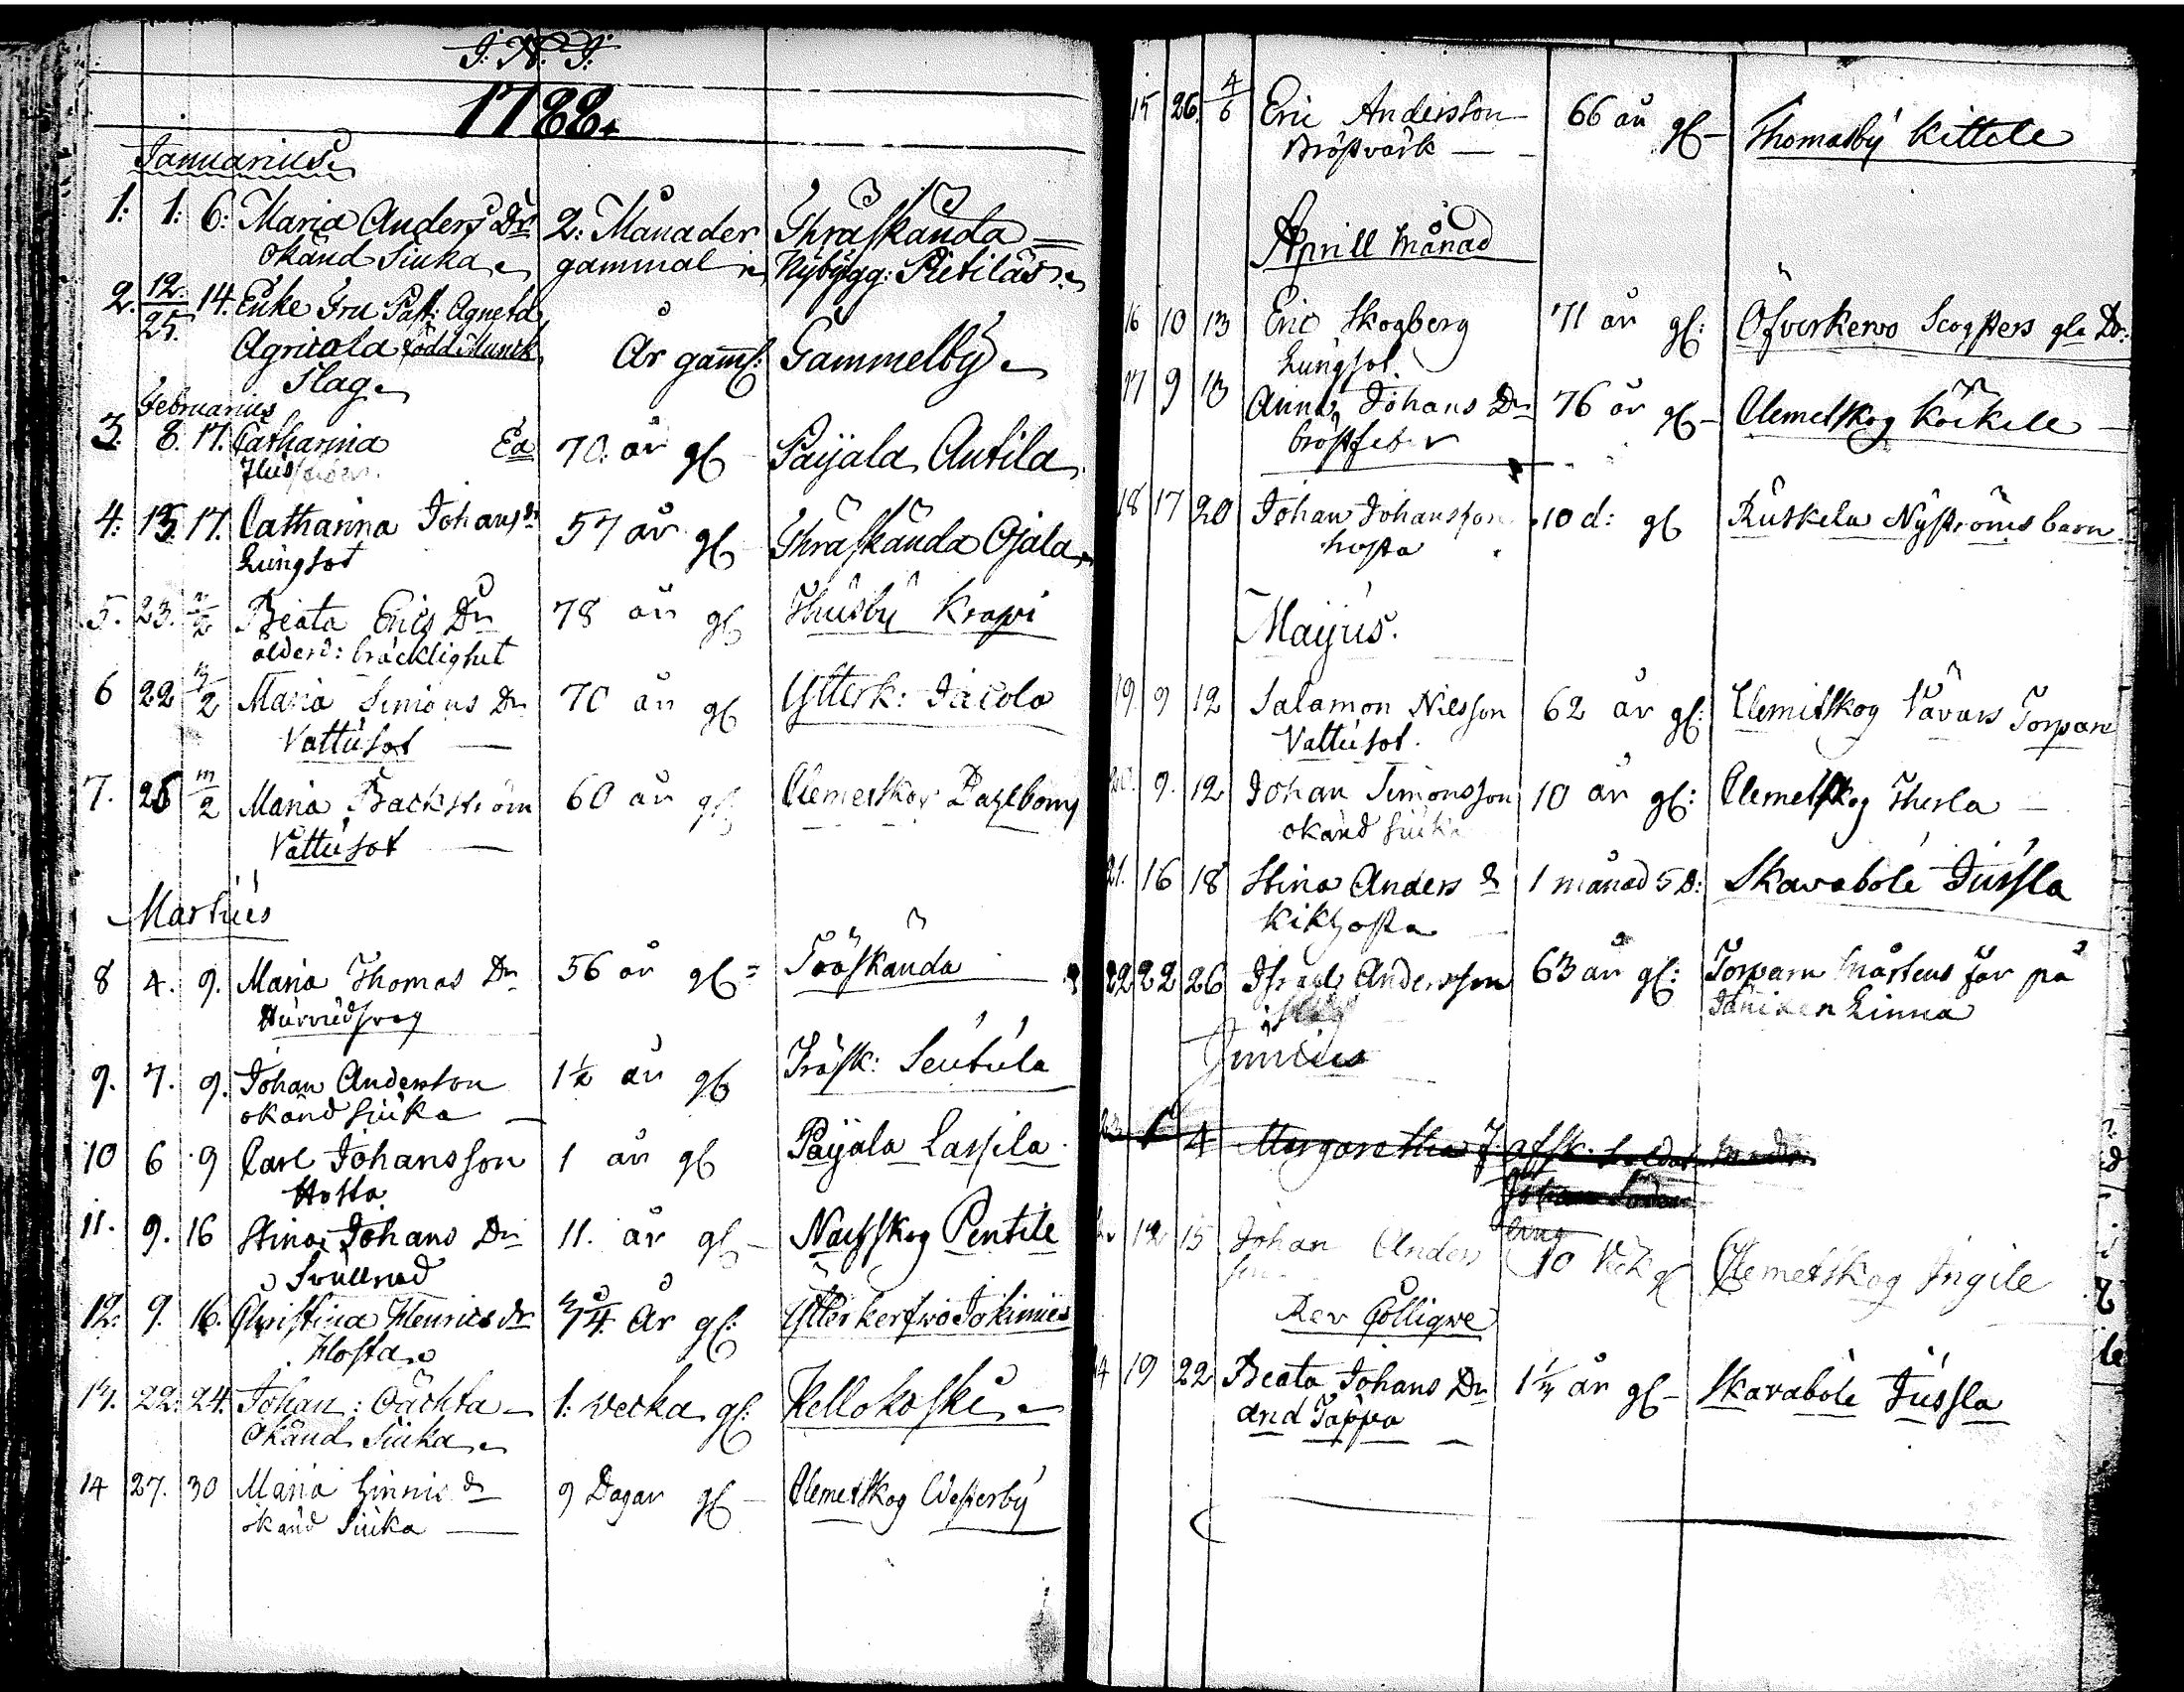 J: N: J:
1788.
Januarius
1: 1: 6: Maria Anders Dr 2: Månader Thräskända
okänd Siuka gammal Nybygg: Pietiläs
2. 12/25. 14. Enke Fru Past: Agneta
Agricola född Munck År gaml: Gammelby
Slag
Februarius
3. 8. 17. Catharina Ed 70. år gl Paijala Antila
4: 15. 17. Catharina Johans dr 57 år gl Thräskända Ojala
Lungsot
5. 23. 2/2 Beata Erics Dr 78 år gl Thusby Krapi
ålderd: bräcklighet
6 22 Maria Simons Dr 70 år gl Ytterk: Jacola
Vattusot
7. 25 m/2 Maria Backström 60 år gl Clemetskog Dahlbom
Vattusot
Martius
8 4. 9. Maria Thomas Dr 56 år gl Träskända
Hufvudsvag
9. 7. 9. Johan Andersson 1½ år gl Träsk: Seutula
okänd siuka
10 6 9 Carl Johansson 1 år gl Paijala Lassila
Hosta
11. 9. 16 Stina Johans Dr 11. år gl Naässkog Pentile
Svullnad
12. 9. 16. Christina Henrics dr 3/4 År gl: Ytterkerfwo Jokimies
Hosta
13. 22. 24. Johan: 1: vecka gl: Kellokoski
Okänd Siuka
14 27. 30 Maria Hinnic dr 9 Dagar gl Clemetskog Westerby
okänd Siuka
15 26. 4/6 Eric Andersson 66 år gl Thomasby Kittele
Bröstvärk
Aprill månad
16 10 13 Eric Skogberg 71 år gl: Öfverkervo Scogsters gla Dr:
Lungsot
17 9 13 Anna Johans Dr 76 år gl Clemetskog Köckile
bröstfeber
18 17 20 Johan Johansson 10 d: gl Ruskela Nyströms barn
hosta
Maijus.
19. 9 12 Salamon Nilsson 62 år gl: Clemetskog Torpare
Vattusot.
20. 9. 12 Johan Simonsson 10 år gl: Clemetskog Therla
okänd siuka
21. 16 18 Stina Anders dr 1 månad 5 D: Skavaböle Jussla
Kikhosta
22 22 26 Israel Andersson 63 år gl: Torparn Mårtens far på
Linna
Junius
4 Margaretha J afsk. Soldat
Johan
12 15 Johan Anders 10 Veck gl Clemetskog Ingile
Rev Colliqve
19 22 Beata Johans Dr 1¼ år gl Skavaböle Jussla
and Täppa